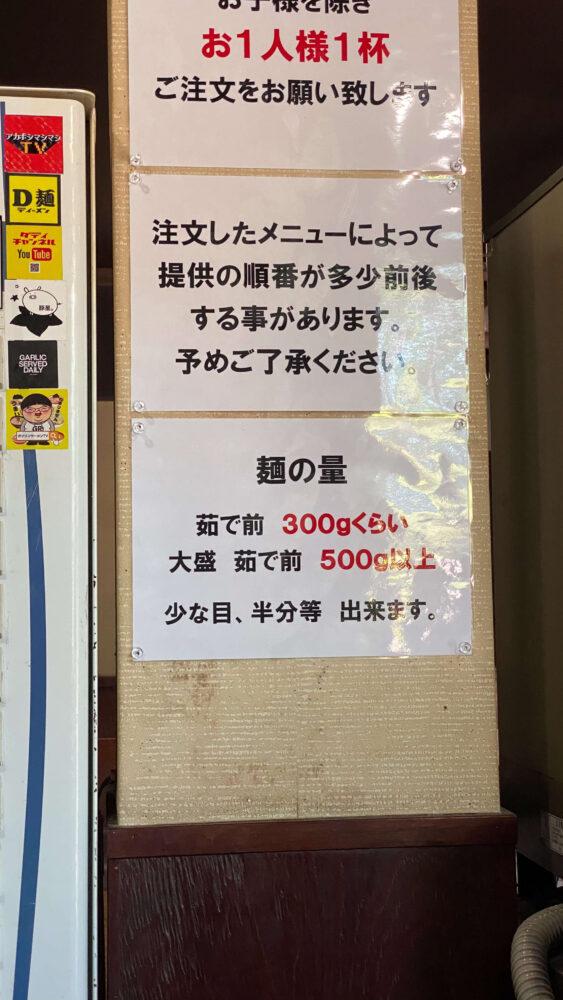 お子様を除き
お1人様1杯
ご注文をお願い致します
注文したメニューによって
提供の順番が多少前後
する事があります。
予めご了承ください。
麺の量
茹で前 300gくらい
大盛 茹で前 500g以上
少な目、半分等 出来ます。
アカボシマシマシ
TV
D麺
ディーメン
チャンネル
YouTube
豚星。
GARLIC
SERVED
DAILY